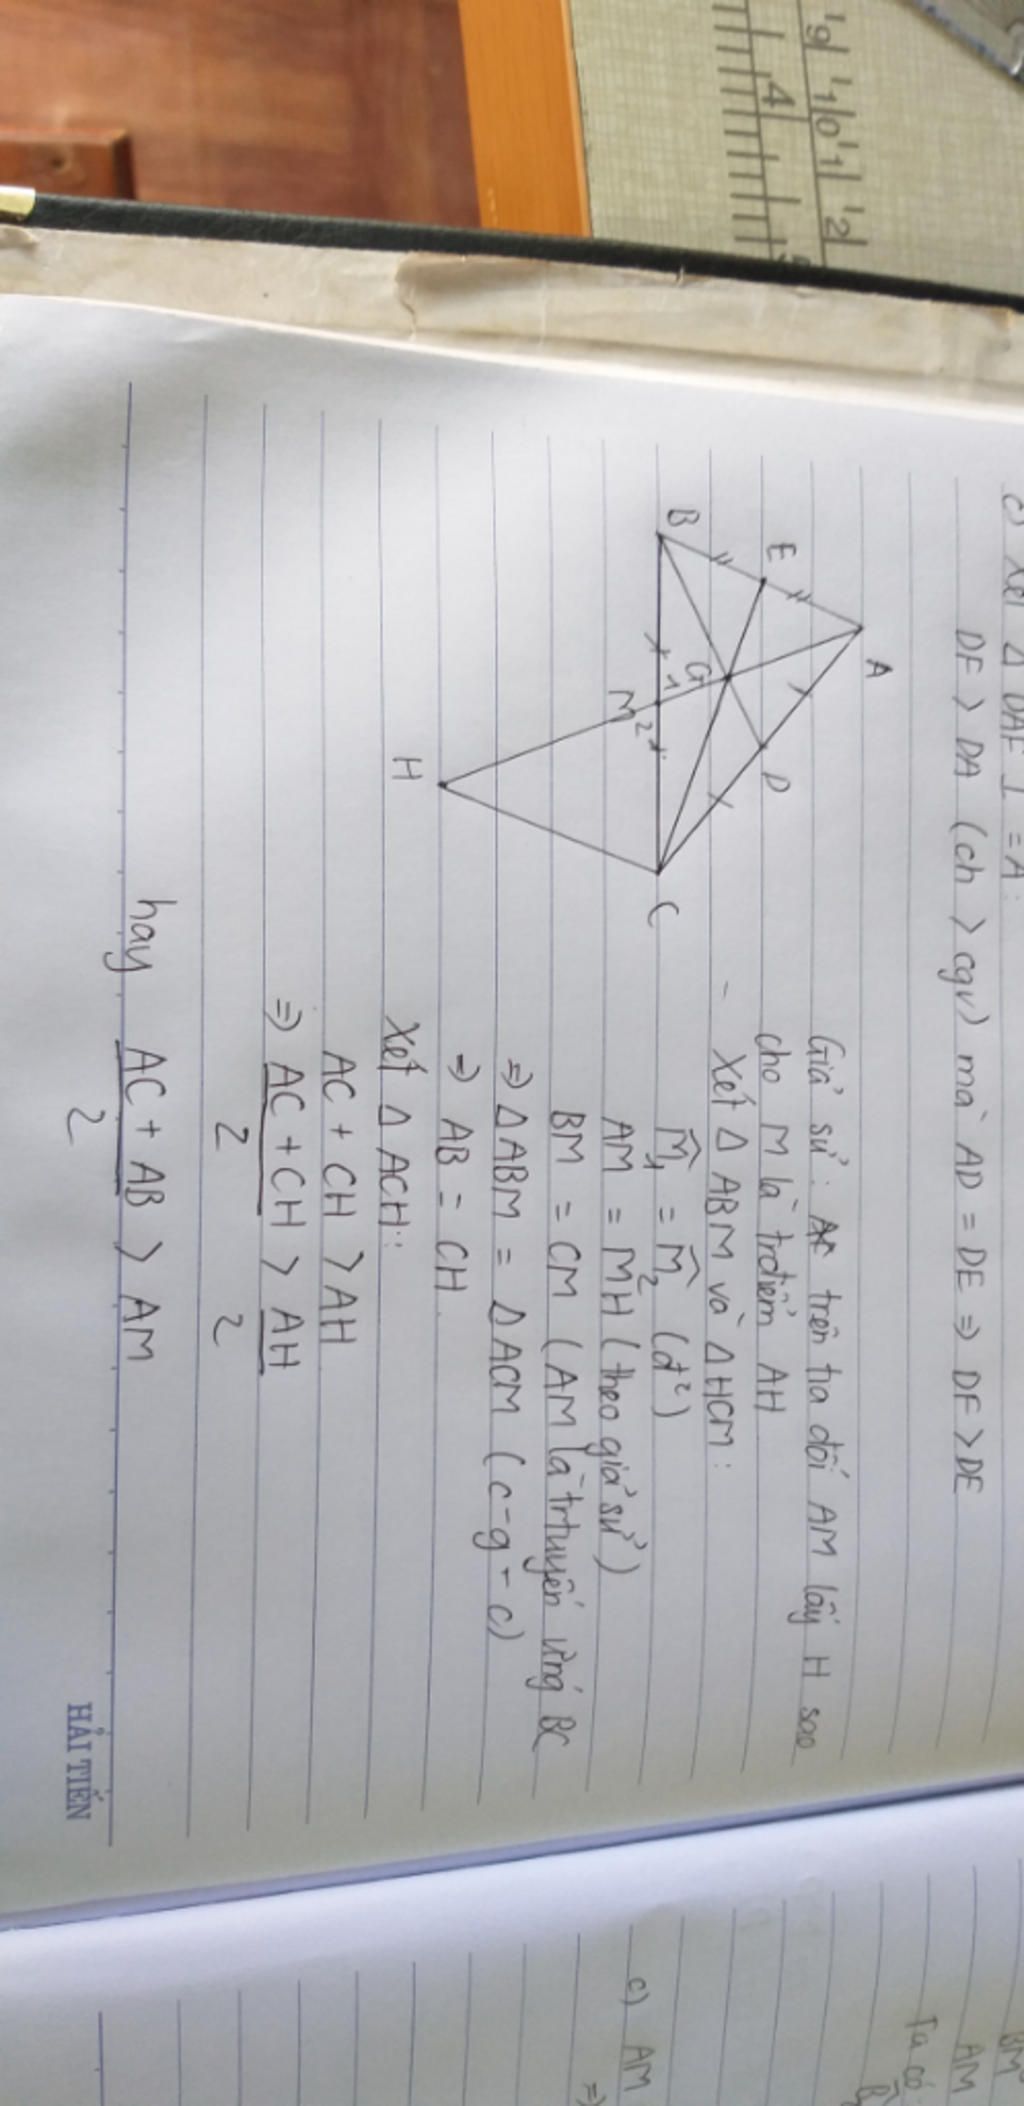 c) Xét Δ DAF ⊥ = A:
DF > DA (ch > cgv) mà AD = DE => DF > DE
Giả sử: trên tia đối AM lấy H sao
cho M là trđiểm AH
- Xét Δ ABM và Δ HCM:
M̂₁ = M̂₂ (đ²)
AM = MH (theo giả sử)
BM = CM (AM là trtuyến ứng BC
=> Δ ABM = Δ ACM (c-g-c)
=> AB = CH.
Xét Δ ACH:
AC + CH > AH
=> AC + CH > AH
2 2
hay AC + AB > AM
2
A
E
D
B
G
1
M
2
C
H
HẢI TIẾN
c) AM
=>
BM
AM
Ta có
'9 1 '10 '1 '2
4